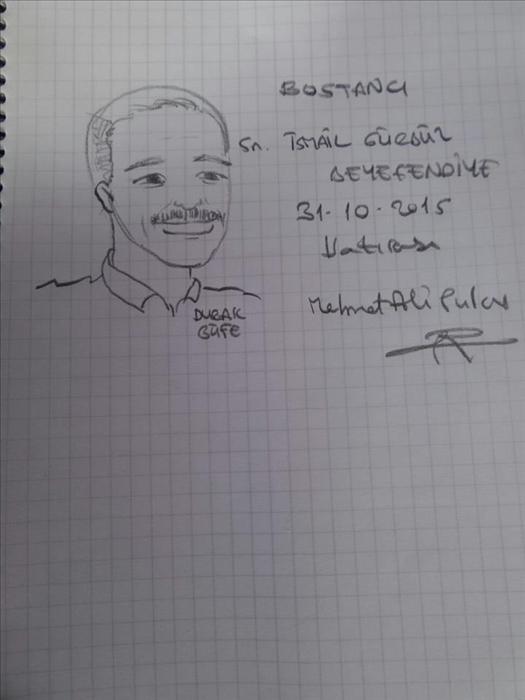 BOSTANCI
Sn. İSMAİL GÜRBÜZ
BEYEFENDİYE
31-10-2015
Hatırası
Mehmet Ali
DURAK
BÜFE